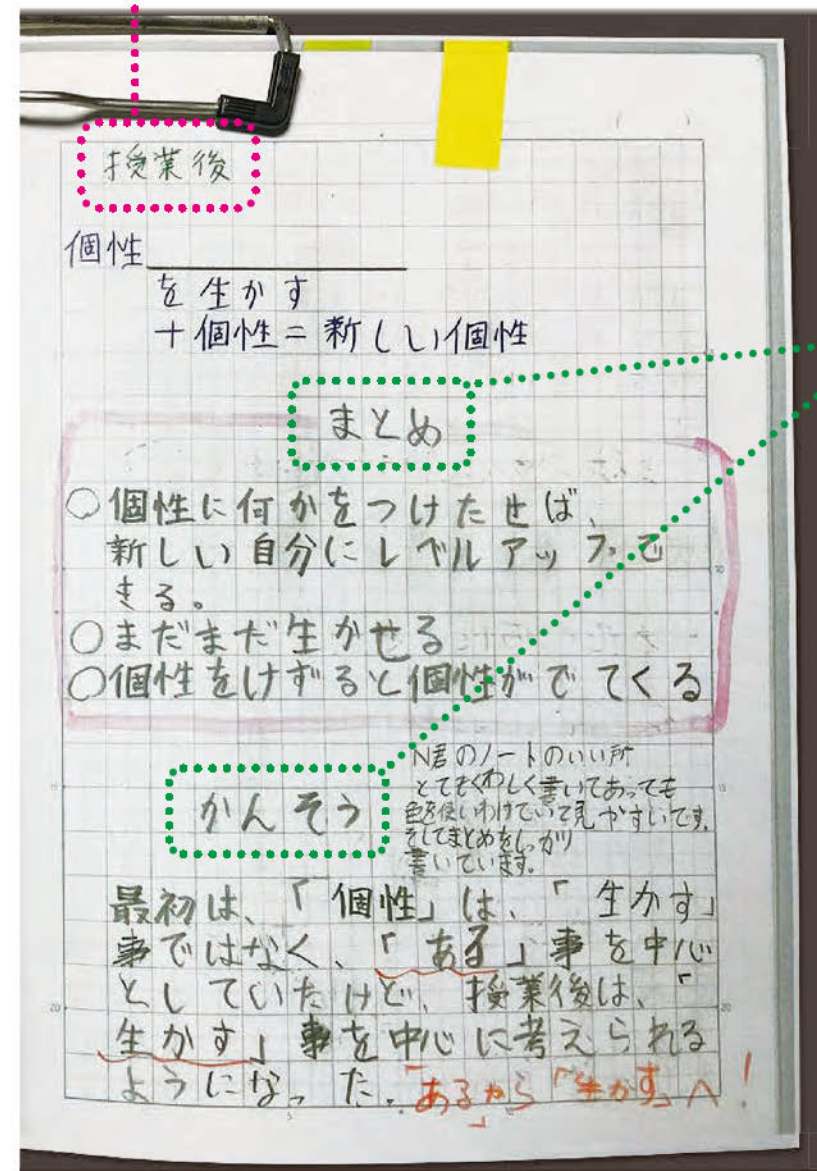 授業後
個性
を生かす
+個性=新しい個性
まとめ
○個性に何かをつけたせば、
新しい自分にレベルアップで
きる。
○まだまだ生かせる
○個性をけずると個性がでてくる
かんそう
N君のノートのいい所
とてもくわしく書いてあっても
色を使いわけていて見やすいです。
そしてまとめをしっかり
書いています。
最初は、「個性」は、「生かす」
事ではなく、「ある」事を中心
としていたけど、授業後は、「
生かす」事を中心に考えられる
ようになった。
「ある」から「生かす」へ!